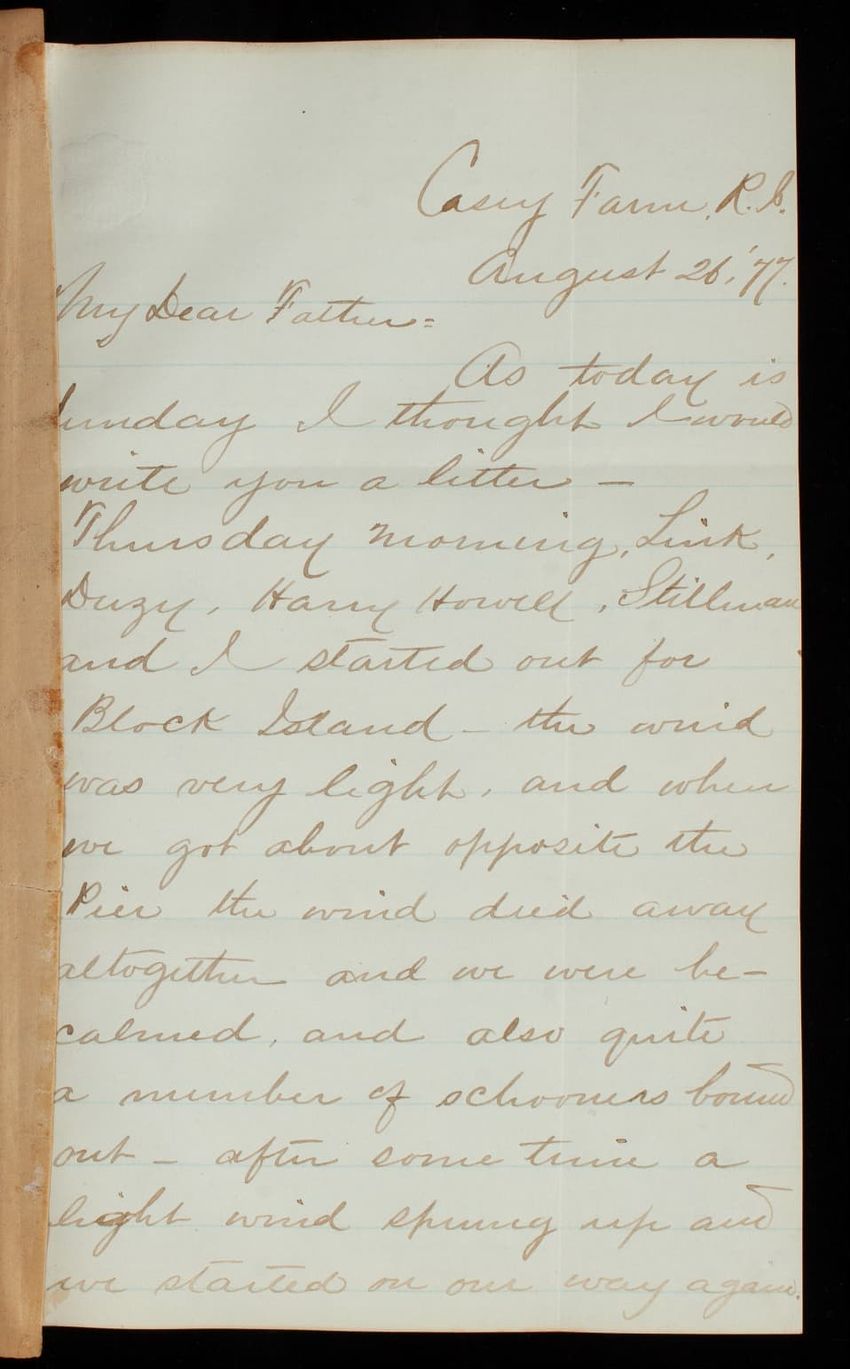 Casey Farm, R.I.
August 26, '77.
My Dear Father=
As today is
Sunday I thought I would
write you a letter —
Thursday morning, Link,
Duzy, Harry Howell, Stillman
and I started out for
Block Island — the wind
was very light, and when
we got about opposite the
Pier the wind died away
altogether and we were be-
calmed, and also quite
a number of schooners bound
out — after some time a
light wind sprung up and
we started on our way again.